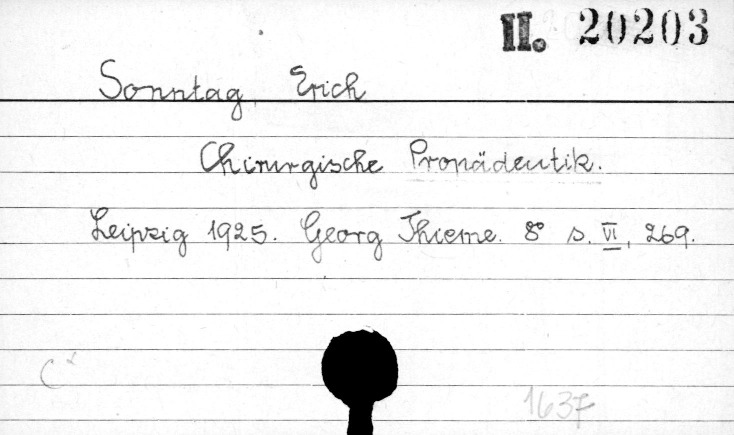 II. 20203
Sonntag, Erich
Chirurgische Propädeutik.
Leipzig 1925. Georg Thieme. 8° s. VI, 269.
1637